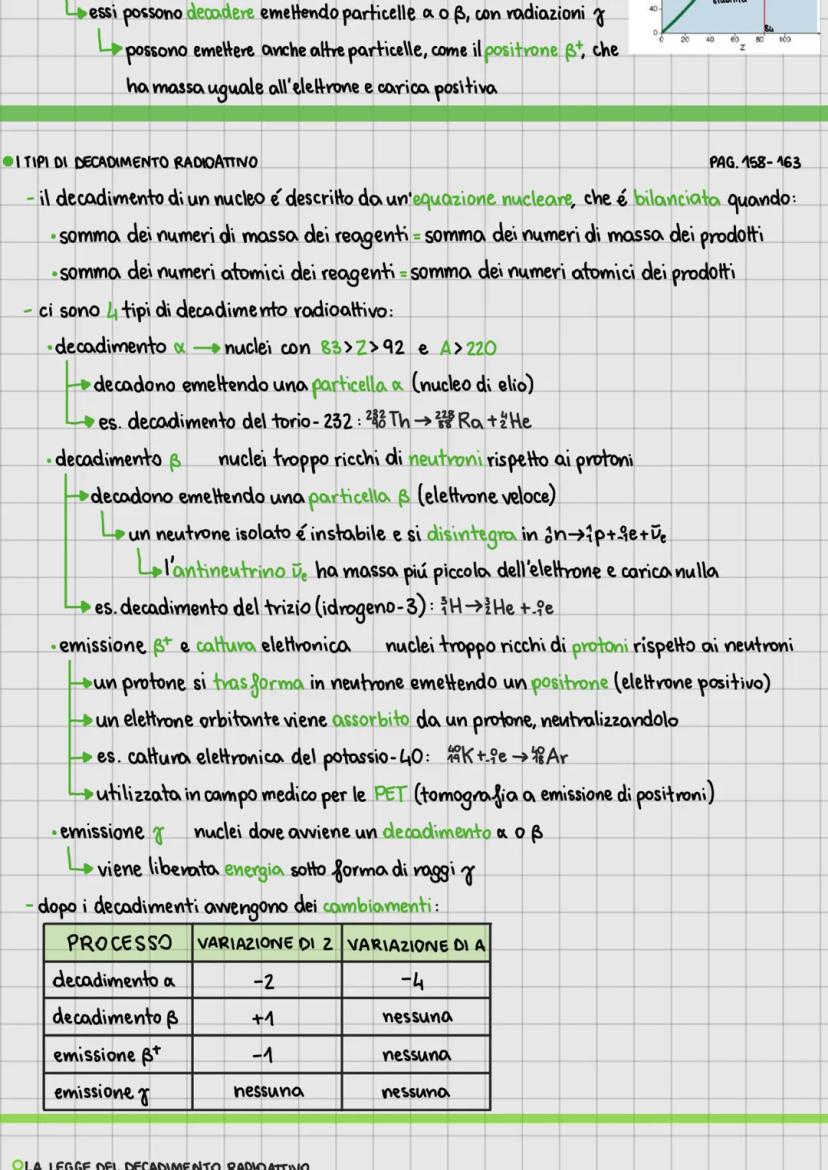 essi possono decadere emettendo particelle α o β, con radiazioni γ
possono emettere anche altre particelle, come il positrone β⁺, che
ha massa uguale all'elettrone e carica positiva
40
0
0 20 40 60 80 84 100
Z
I TIPI DI DECADIMENTO RADIOATTIVO PAG. 158-163
- il decadimento di un nucleo é descritto da un'equazione nucleare, che é bilanciata quando:
• somma dei numeri di massa dei reagenti = somma dei numeri di massa dei prodotti
• somma dei numeri atomici dei reagenti = somma dei numeri atomici dei prodotti
- ci sono 4 tipi di decadimento radioattivo:
• decadimento α → nuclei con 83>Z>92 e A>220
decadono emettendo una particella α (nucleo di elio)
es. decadimento del torio-232: ²³²₉₀Th → ²²⁸₈₈Ra + ⁴₂He
• decadimento β nuclei troppo ricchi di neutroni rispetto ai protoni
decadono emettendo una particella β (elettrone veloce)
un neutrone isolato é instabile e si disintegra in ¹₀n→¹₁p+₋₁⁰e+ν̄ₑ
l'antineutrino ν̄ₑ ha massa piú piccola dell'elettrone e carica nulla
es. decadimento del trizio (idrogeno-3): ³₁H→³₂He + ₋₁⁰e
• emissione β⁺ e cattura elettronica nuclei troppo ricchi di protoni rispetto ai neutroni
un protone si trasforma in neutrone emettendo un positrone (elettrone positivo)
un elettrone orbitante viene assorbito da un protone, neutralizzandolo
es. cattura elettronica del potassio-40: ⁴⁰₁₉K + ₋₁⁰e → ⁴⁰₁₈Ar
utilizzata in campo medico per le PET (tomografia a emissione di positroni)
• emissione γ nuclei dove avviene un decadimento α o β
viene liberata energia sotto forma di raggi γ
- dopo i decadimenti avvengono dei cambiamenti:
PROCESSO VARIAZIONE DI Z VARIAZIONE DI A
decadimento α -2 -4
decadimento β +1 nessuna
emissione β⁺ -1 nessuna
emissione γ nessuna nessuna
LA LEGGE DEL DECADIMENTO RADIOATTIVO